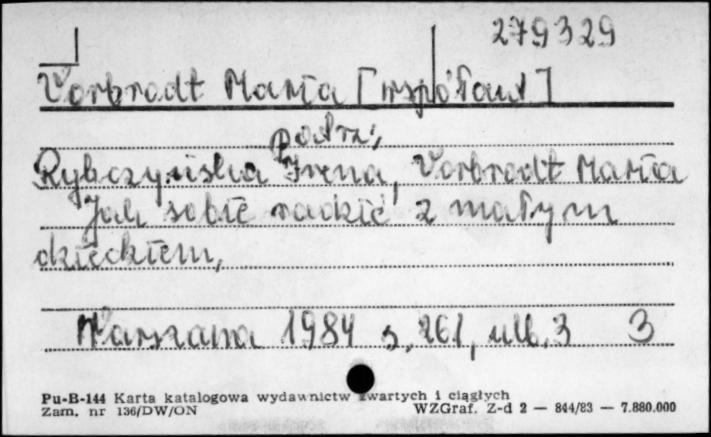 279329
Vorbrodt Maria [współaut]
patrz:
Rybczyńska Irena, Vorbrodt Maria
Jak sobie radzić z małym
dzieckiem,
Warszawa 1984 s. 261, nlb. 3 3
Pu-B-144 Karta katalogowa wydawnictw zwartych i ciągłych
Zam. nr 136/DW/ON WZGraf. Z-d 2 — 844/83 — 7.880.000